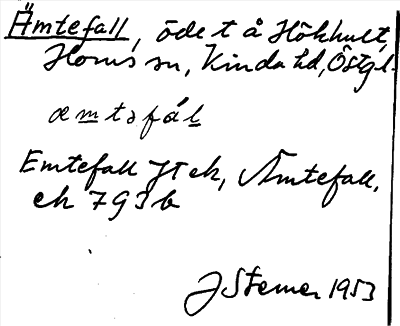 Ämtefall, öde t å Hökhult,
Horns sn, Kinda hd, Östgl.
æmtəfál
Emtefall JTek, Ämtefall,
ek 793b
J Stemer 1953